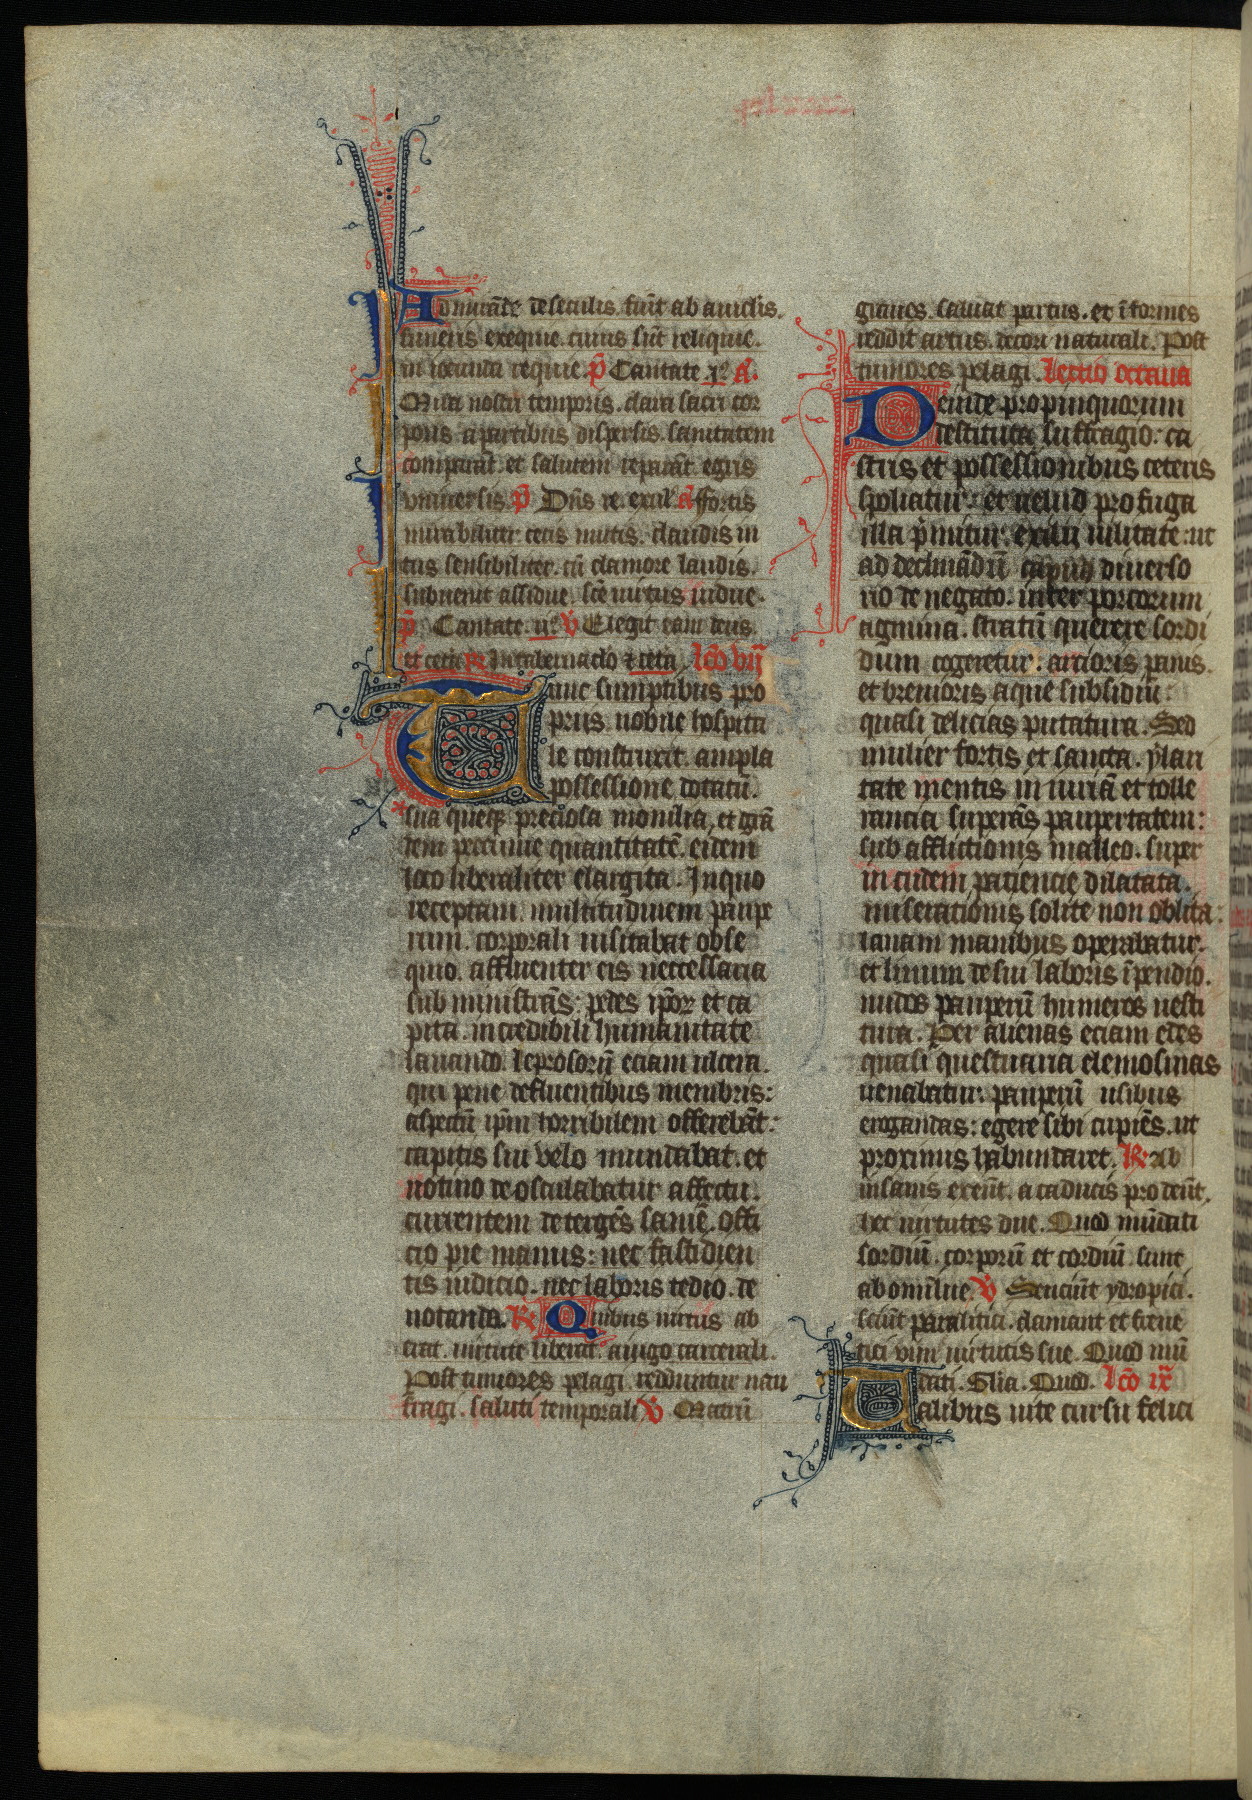 Admirande i seculis fuit ab aviculis.
funeris exequie. cuius sunt reliquie.
in iocunda requie. p̄ Cantate .i.º A.
Mira nostri temporis. clara sacri cor
poris a partibus dispersis. sanitatem
comparāt. et salutem reparāt egris
vniversis. p̄ Dn̄s re. exul. a ffortis
mirabiliter. cecis mutis. claudis in
tus sensibiliter. cū clamore laudis.
subuenit assidue. sc̄e uirtus uidue.
p̄ Cantate. ii.º v̄ Elegit eam deus.
et cetera R̄ In tabernaclo et cetera. lc̄o vii
Tunc sumptibus pro
priis. nobile hospita
le construxit. ampla
possessione dotatū.
sua queque preciosa monilia, et grā
dem peccunie quantitatē. eidem
loco liberaliter elargita. In quo
receptam. multitudinem paupe
rum. corporali uisitabat obse
quio. affluenter eis neccessaria
sub ministrās: pedes ipoꝝ et ca
pita. incredibili humanitate
lauando. leprosorū eciam ulcera.
qui pene defluentibus membris:
aspectū ip̄m horribilem offerebāt:
capitis sui velo mundabat. et
notino deosculabatur affectu.
currentem detergēs saniē. offi
cio pie manus: nec fastidien
tis iudicio. nec laboris tedio. de
notanda. R̄ Quibus uirtus ab
erat. uirtute liberat. a iugo carcerali.
Post timores pelagi. redduntur nau
fragi. saluti temporali v̄ Matrū
graues. saluat partus. et īformes
reddit artus. decori naturali. Post
timores pelagi. lectio octaua
Deinde propinquorum
destituta suffragio: ca
stris et possessionibus ceteris
spoliatur. et uelud profuga
illa p̄mitur. exilii uilitate: ut
ad declinādū caput diuerso
rio denegato. inter porcorum
agmina. stratū querere sordi
dum cogeretur: artioris panis.
et breuioris aque subsidiū
quasi delicias putatura. Sed
mulier fortis et sancta. ylari
tate mentis in iuriā et tolle
rancia superās paupertatem:
sub afflictionis malleo. super
in cudem paciencie dilatata.
miserationis solite non oblita:
lanam manibus operabatur.
et linum de sui laboris īpendio.
nudos pauperū humeros uesti
tura. Per alienas eciam edes
quasi questuaria elemosinas
uenabatur. pauperū usibus
erogandas: egere sibi cupiēs. ut
proximus habundaret. R̄ Ab
insanis exeūt. a caducis prodeūt.
hec uirtutes due. Quod mūdati
sordiū. corporū et cordiū. sunt
ab omī lue. v̄ Senciūt ydropici.
sciūt paralitici. clamant et frene
tici vim uirtutis sue. Quod mū
dati. Glia. Quod. lc̄o ix
Talibus uite cursu felici